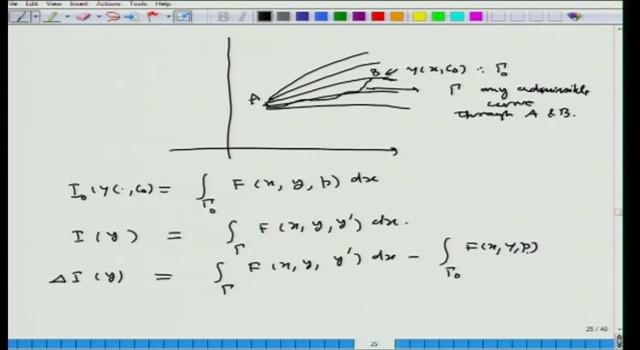 Edit View Insert Actions Tools Help
B y(x,c₀) : Γ₀
A
Γ any admissible
curve
through A & B.
I₀(y(·,c₀)) = ∫_Γ₀ F(x, y, p) dx
I(y) = ∫_Γ F(x, y, y') dx.
ΔI(y) = ∫_Γ F(x, y, y') dx - ∫_Γ₀ F(x, y, p)
25 / 40
25